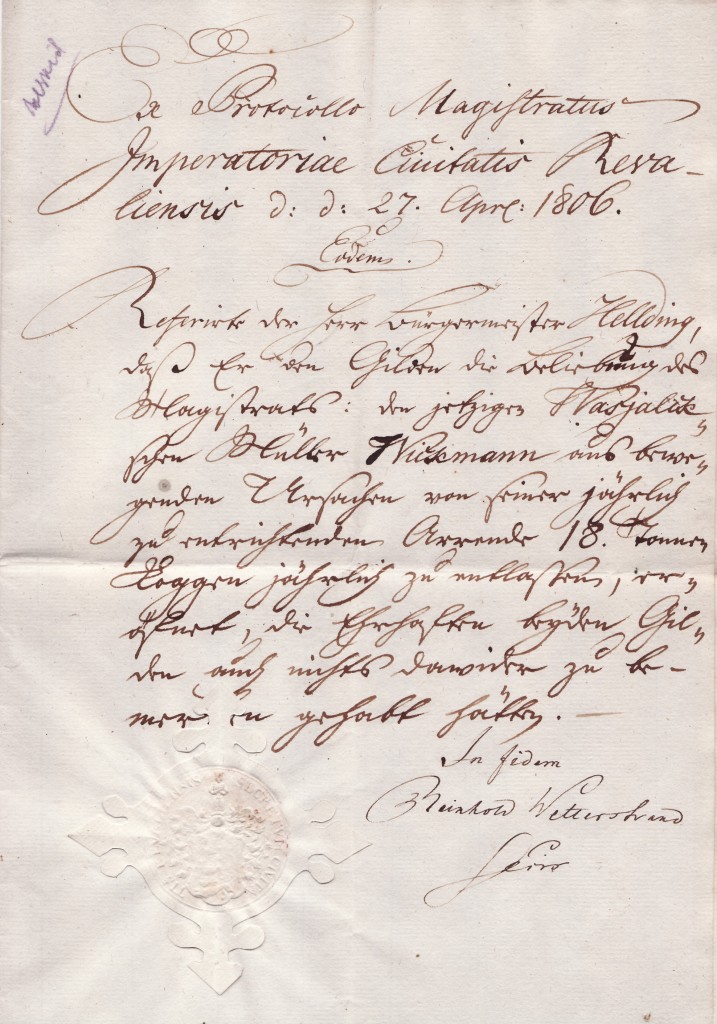 Ex Protocollo Magistratus
Imperatoriae Civitatis Reva-
liensis d: d: 27. Apr: 1806.
Eodem.
Referirte der Herr Bürgermeister Hellding,
daß Er den Gilden die Beliebung des
Magistrats: den jetzigen Wasjalick-
schen Müller Wickmann aus bewe-
genden Ursachen von seiner jährlich
zu entrichtenden Arrende 18. Tonnen
Roggen jährlich zu entlassen, er-
öfnet, die Ehrhaften beyden Gil-
den auch nichts dawider zu be-
merken gehabt hätten. —
In fidem
Reinhold Wetterstrand
Secrs